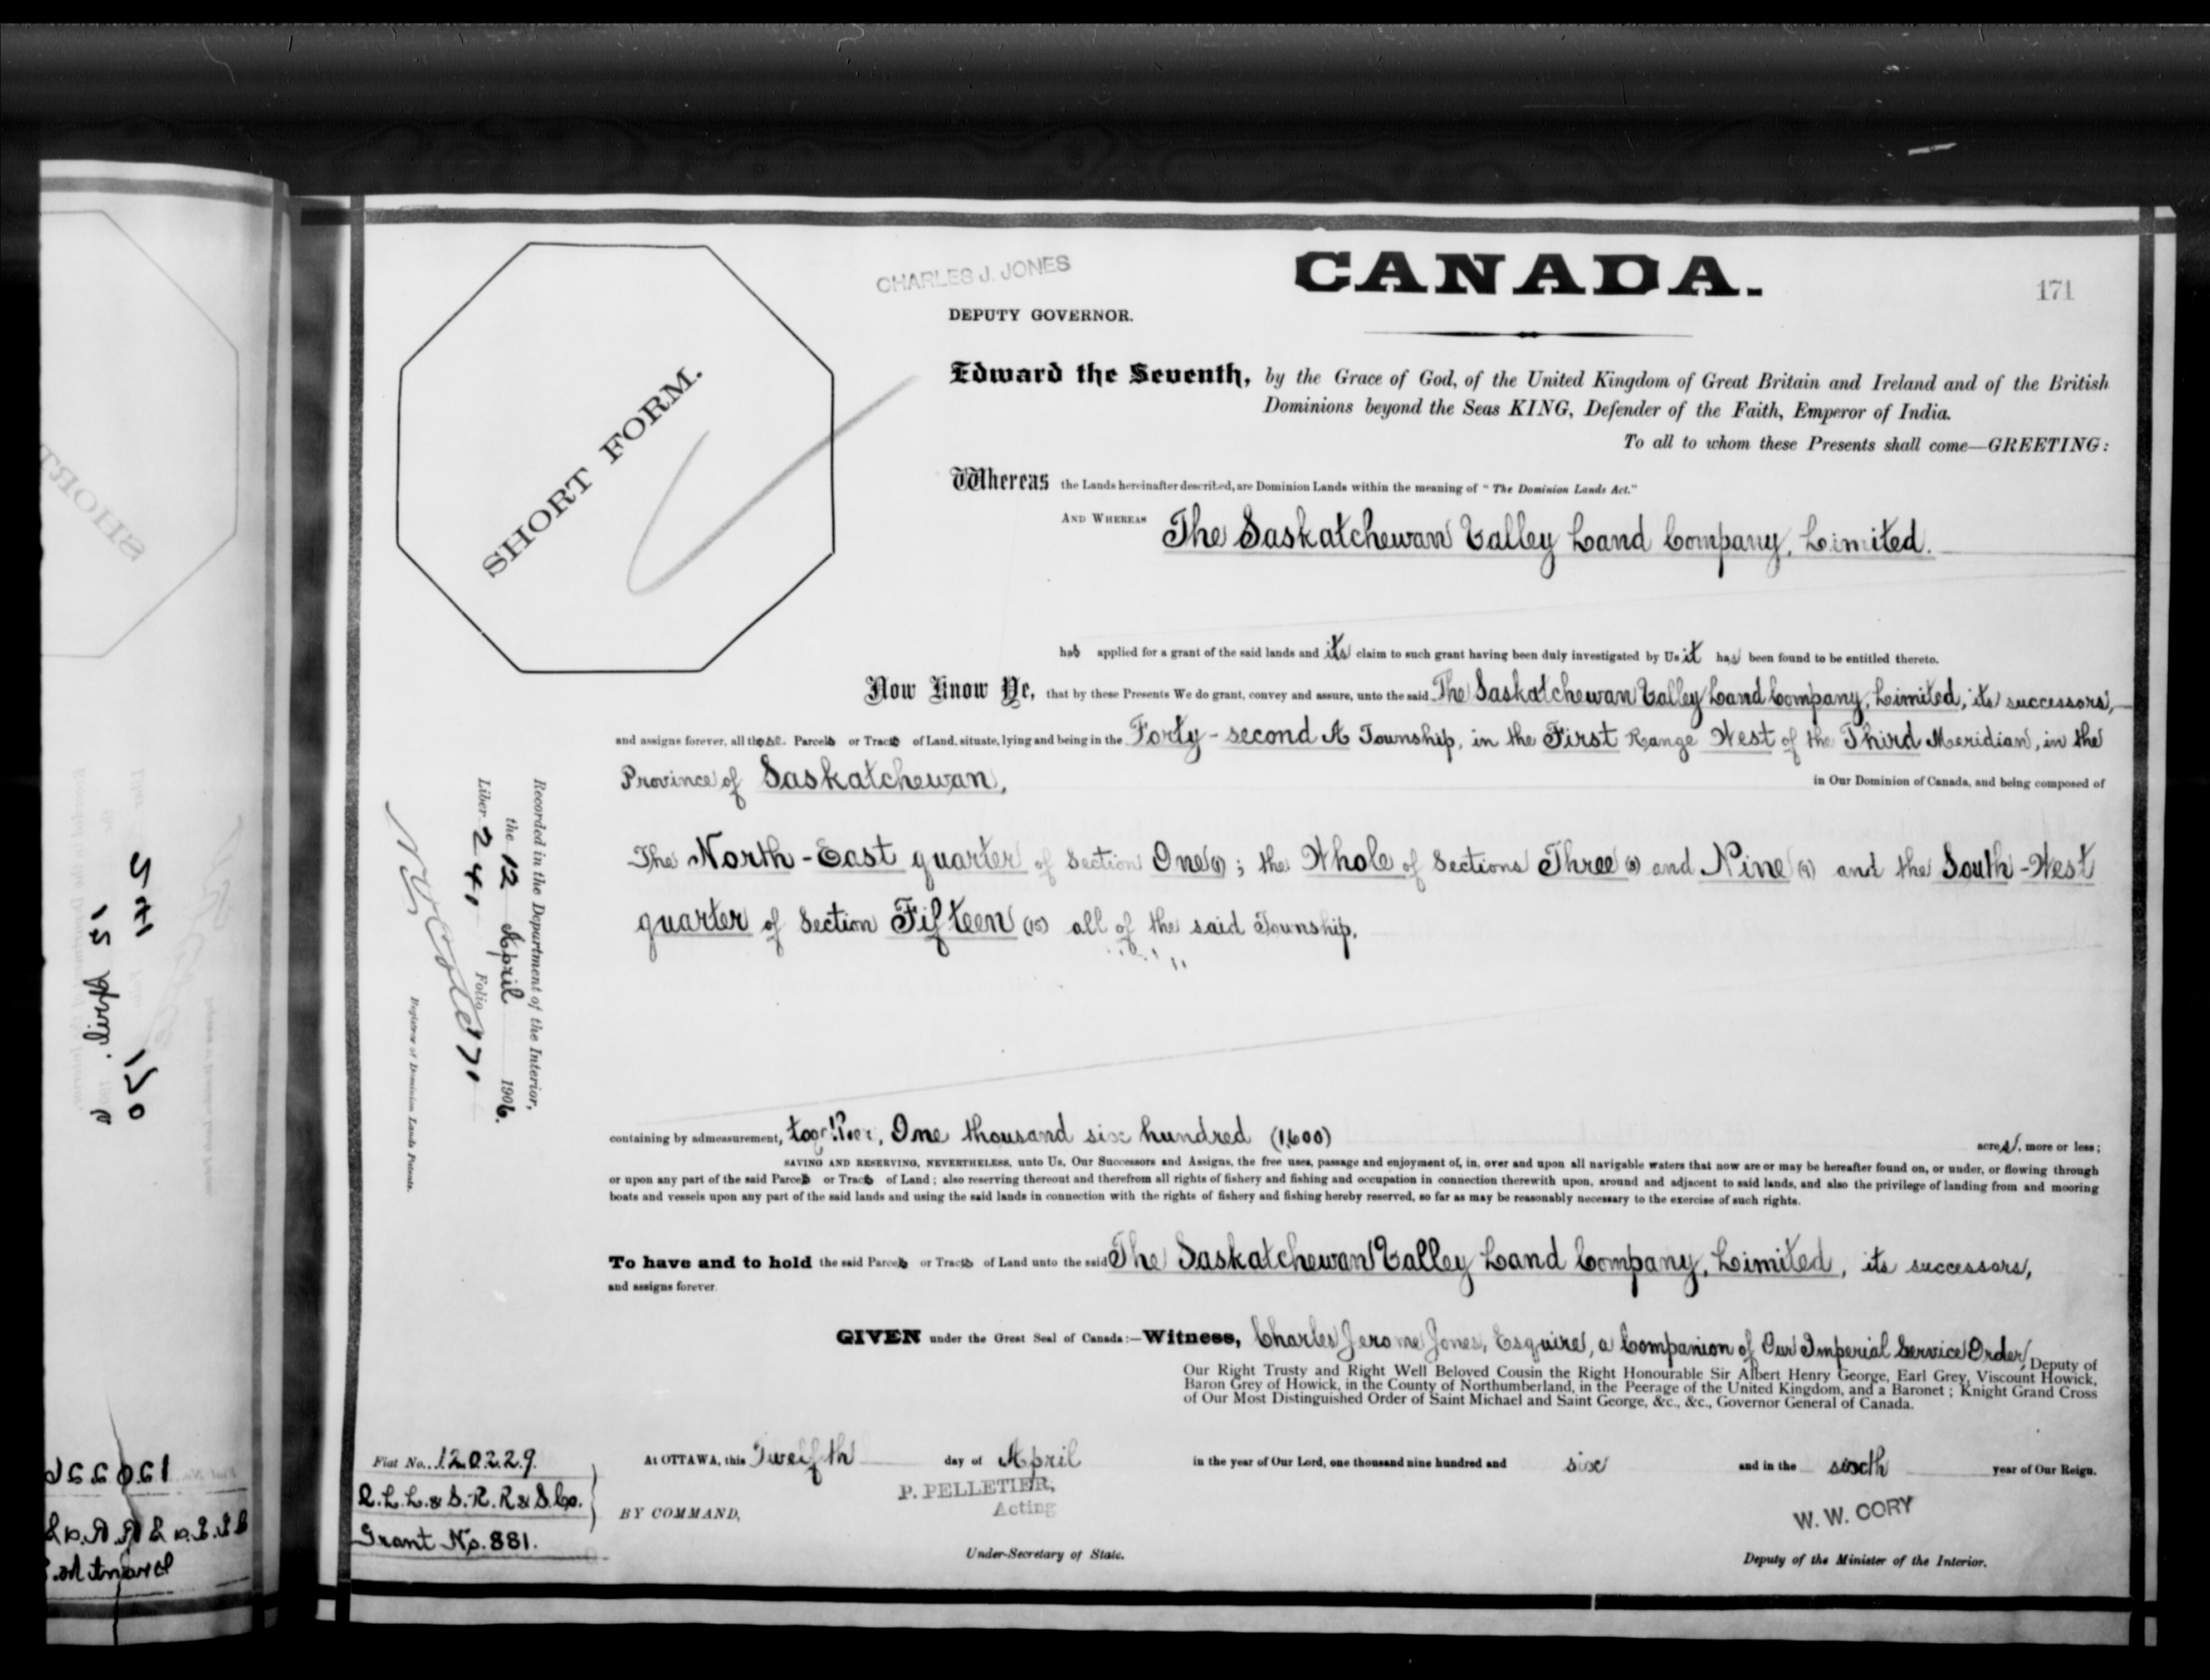 CHARLES J. JONES
DEPUTY GOVERNOR.
CANADA.
171
SHORT FORM.
Edward the Seventh, by the Grace of God, of the United Kingdom of Great Britain and Ireland and of the British
Dominions beyond the Seas KING, Defender of the Faith, Emperor of India.
To all to whom these Presents shall come—GREETING:
Whereas the Lands hereinafter described, are Dominion Lands within the meaning of "The Dominion Lands Act."
AND WHEREAS The Saskatchewan Valley Land Company, Limited.
has applied for a grant of the said lands and its claim to such grant having been duly investigated by Us it has been found to be entitled thereto.
Now Know Ye, that by these Presents We do grant, convey and assure, unto the said The Saskatchewan Valley Land Company, Limited, its successors,
and assigns forever, all those Parcels or Tracts of Land, situate, lying and being in the Forty-second A Township, in the First Range West of the Third Meridian, in the
Province of Saskatchewan, in Our Dominion of Canada, and being composed of
The North-East quarter of Section One (1); the Whole of Sections Three (3) and Nine (9) and the South-West
quarter of Section Fifteen (15) all of the said Township.
containing by admeasurement, together, One thousand six hundred (1600) acres, more or less;
SAVING AND RESERVING, NEVERTHELESS, unto Us, Our Successors and Assigns, the free uses, passage and enjoyment of, in, over and upon all navigable waters that now are or may be hereafter found on, or under, or flowing through
or upon any part of the said Parcels or Tracts of Land; also reserving thereout and therefrom all rights of fishery and fishing and occupation in connection therewith upon, around and adjacent to said lands, and also the privilege of landing from and mooring
boats and vessels upon any part of the said lands and using the said lands in connection with the rights of fishery and fishing hereby reserved, so far as may be reasonably necessary to the exercise of such rights.
To have and to hold the said Parcels or Tracts of Land unto the said The Saskatchewan Valley Land Company, Limited, its successors,
and assigns forever.
GIVEN under the Great Seal of Canada:—Witness, Charles Jerome Jones, Esquire, a Companion of Our Imperial Service Order, Deputy of
Our Right Trusty and Right Well Beloved Cousin the Right Honourable Sir Albert Henry George, Earl Grey, Viscount Howick,
Baron Grey of Howick, in the County of Northumberland, in the Peerage of the United Kingdom, and a Baronet; Knight Grand Cross
of Our Most Distinguished Order of Saint Michael and Saint George, &c., &c., Governor General of Canada.
At OTTAWA, this Twelfth day of April in the year of Our Lord, one thousand nine hundred and six and in the sixth year of Our Reign.
BY COMMAND,
P. PELLETIER,
Acting
Under-Secretary of State.
W. W. CORY
Deputy of the Minister of the Interior.
Recorded in the Department of the Interior,
the 12 April 1906.
Liber 240 Folio 171
Registrar of Dominion Lands Patents.
Fiat No. 120229.
Q.L.L. & S.R.R & S.Co.
Grant No. 881.